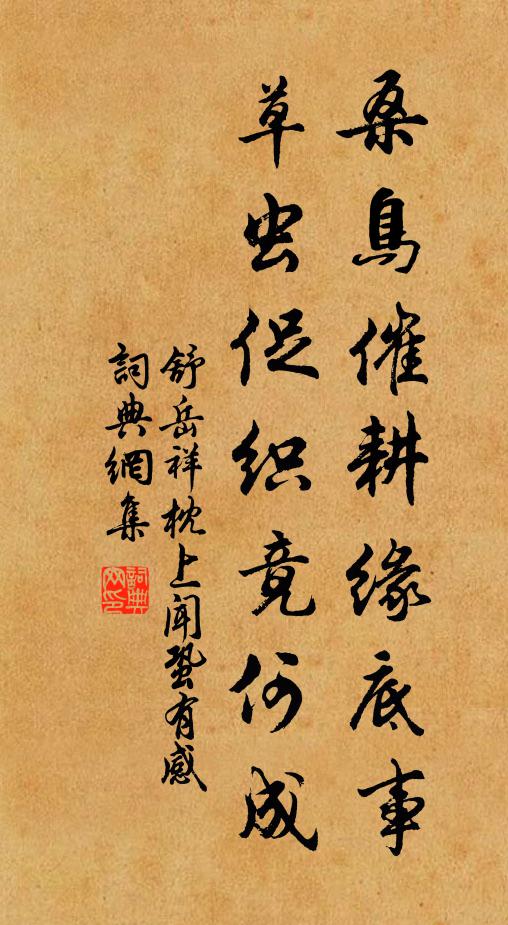 桑鳥催耕緣底事
草虫促织竟何成
舒岳祥枕上聞蛩有感
詞典網集
詞典
网印